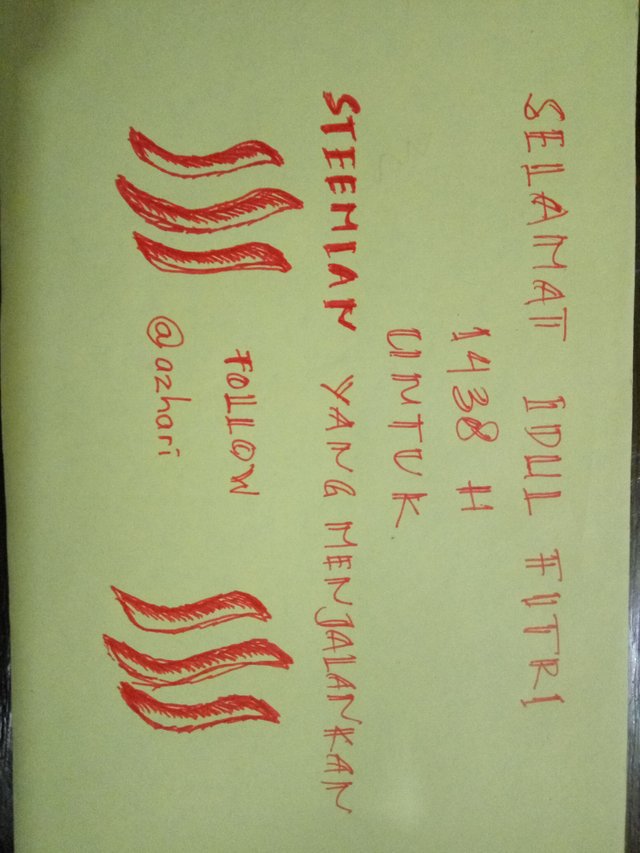 SELAMAT IDUL FITRI
1438 H
UNTUK
STEEMIAN YANG MENJALANKAN
FOLLOW
@azhari